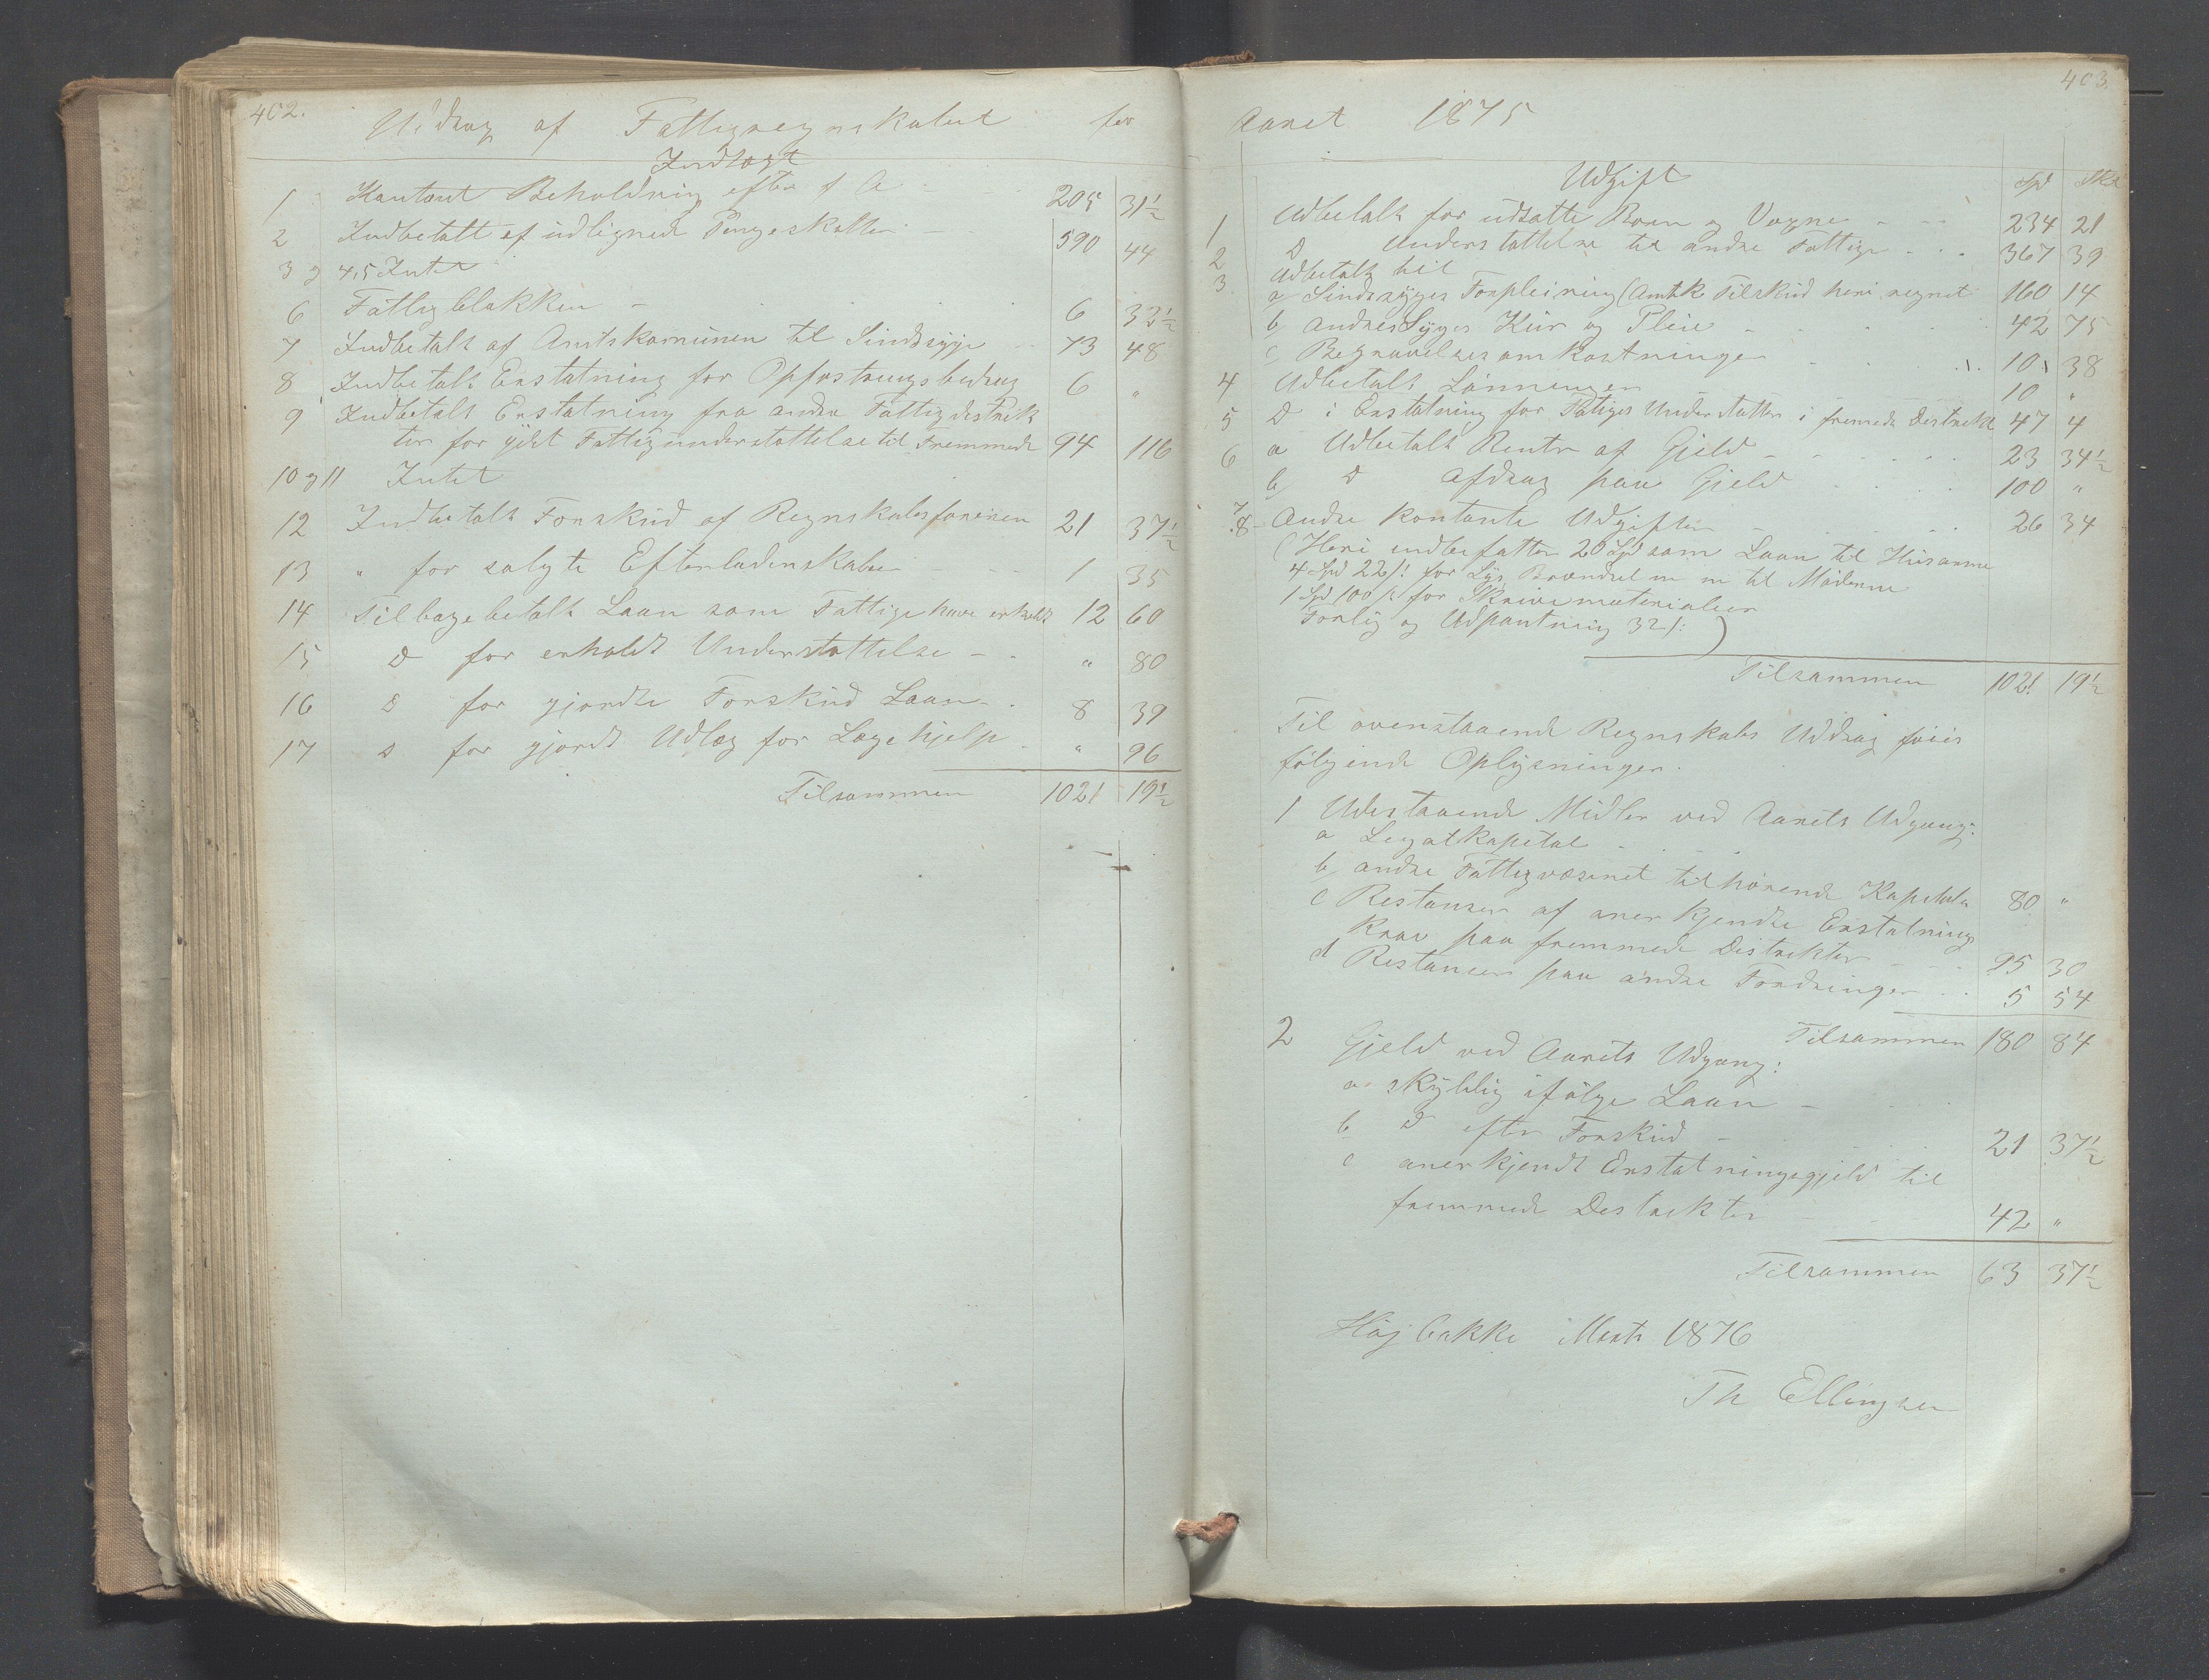 402.
Uddrag af Fattigregnskabet for
Indtægt
1 Kontant Beholdning efter f A - 205 31½
2 Indbetalt af udlignede Pengeskatter - 590 44
3 og 4, 5 Intet
6 Fattigblokken - 6 32½
7 Indbetalt af Amtskomunen til Sindssyge 73 48
8 Indbetalt Erstatning for Opfostringsbidrag 6 "
9 Indbetalt Erstatning fra andre Fattigdistrik
ter for ydet Fattigunderstøttelse til Fremmede 94 116
10 og 11 Intet
12 Indbetalt Forskud af Regnskabsføreren 21 37½
13 " for solgte Efterladenskaber - - 1 35
14 Tilbagebetalt Laan som Fattige have erholdt 12 60
15 D for erholdt Understøttelse - - " 80
16 D for gjordte Forskud Laan - 8 39
17 D for gjordt Udlæg for Lægehjelp - " 96
Tilsammen 1021 19½
403.
Aaret 1875
Udgift Spd Skl
1 Udbetalt for udsatte Børn og Voxne - - - 234 21
2 D Understøttelse til andre Fattige - - - 367 39
3 Udbetalt til
a Sindssyges Forpleining (Amtsk Tilskud heri regnet 160 14
b andres Syges Kur og Pleie - 42 75
c Begravelsesomkostninger 10 38
4 Udbetalt Lønninger 10 "
5 D i Erstatning for Fatiges Understøttes i fremede Destrikt 47 4
6 a Udbetalt Renter af Gjeld - - - 23 34½
b D Afdrag paa Gjeld 100 "
7. 8 - Andre kontante Udgifter - - - 26 34
(Heri indbefattes 20 Spd som Laan til Husarme
4 Spd 22/: for Lys Brændsel m m til Møderne
1 Spd 100 /: for Skrivematerialier
Forlig og Udpantning 32/: )
Tilsammen 1021 19½
Til ovenstaaende Regnskabs Uddrag føies
følgende Oplysninger.
1 Udestaaende Midler ved Aarets Udgang:
a Legatkapital -
b andre Fattigvæsenet tilhørende Kapitaler 80 "
c Restanser af anerkjendte Erstatnings
Krav paa fremmede Distrikter - - - 95 30
d Restanser paa andre Fordringer - - 5 54
Tilsammen 180 84
2 Gjeld ved Aarets Udgang:
a skyldig ifølge Laan -
b D efter Forskud - 21 37½
c anerkjendt Erstatningsgjeld til
fremmede Destrikter - 42 "
Tilsammen 63 37½
Højbakke Marts 1876
Th Ellingsen